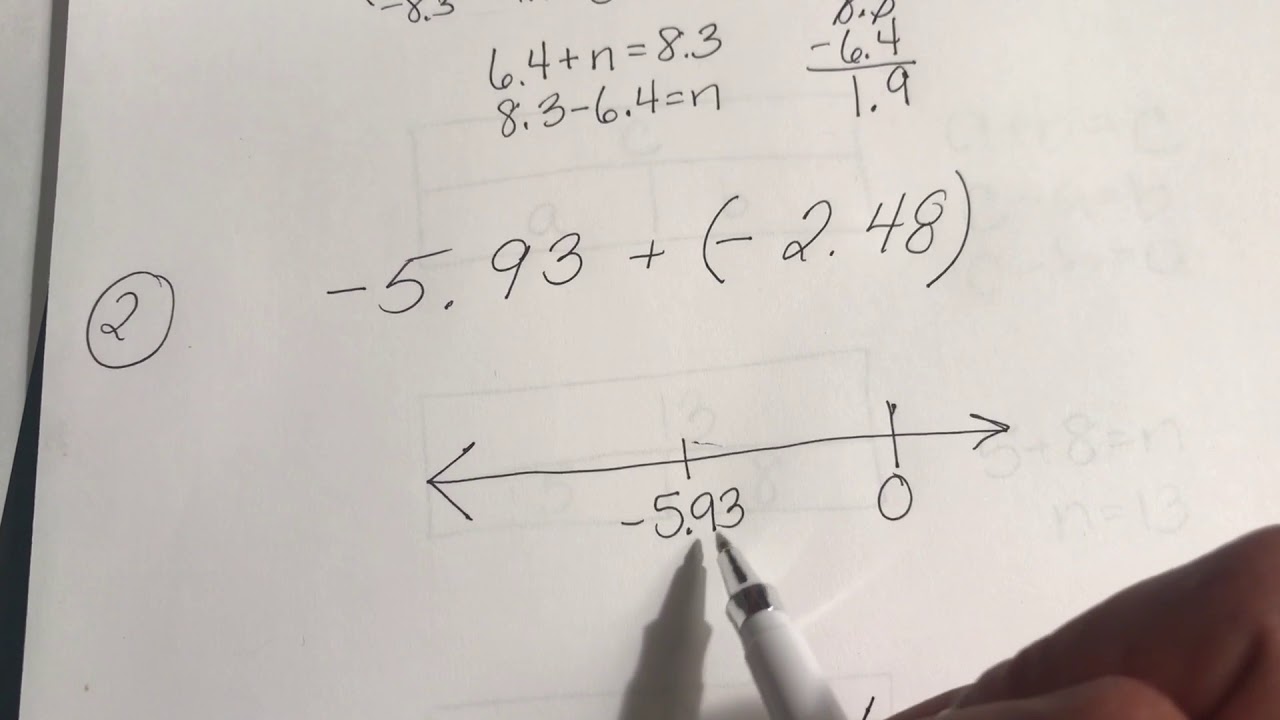 -8.3
6.4+n=8.3
8.3-6.4=n
-6.4
1.9
2
-5.93 + (-2.48)
-5.93
0